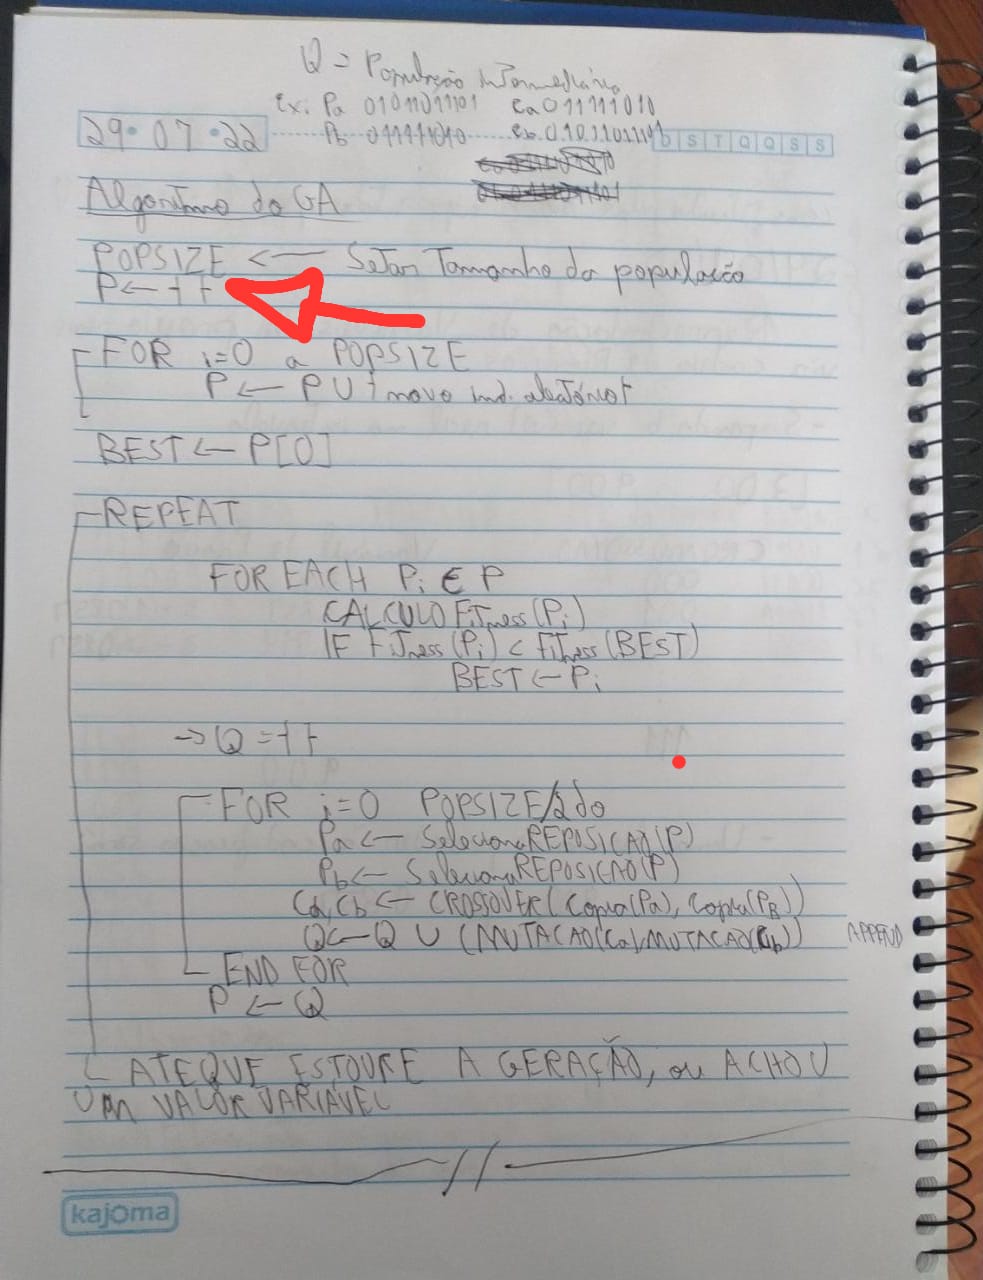 Q = População intermediária
Ex: Pa 01011011101 Ca 011111010
29 • 07 • 22 Pb 011111010 Cb 01011011101 D S T Q Q S S
Algoritmo do GA
POPSIZE ← Setar Tamanho da população
P ← { }
FOR i=0 a POPSIZE
P ← P U { novo ind. aleatório }
BEST ← P[0]
REPEAT
FOR EACH Pi ∈ P
CALCULO Fitness(Pi)
IF Fitness(Pi) < Fitness(BEST)
BEST ← Pi
→ Q = { }
FOR i=0 POPSIZE/2 do
Pa ← SelecionaREPOSICAO(P)
Pb ← SelecionaREPOSICAO(P)
Ca, Cb ← CROSSOVER(Copia(Pa), Copia(PB))
Q ← Q U (MUTACAO(Ca), MUTACAO(Cb)) APPEND
END FOR
P ← Q
ATE QUE ESTOURE A GERAÇÃO, ou ACHOU
UM VALOR VARIAVEL
kajoma